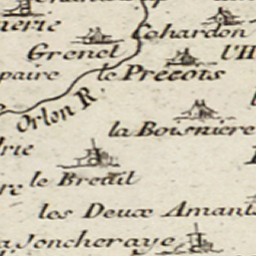 nerie
Cohardon
Grenet
l'H
paire
le Precois
Orlon R.
la Boisniere
rie
le Breuil
re
les Deux Amants
a Joncheraye